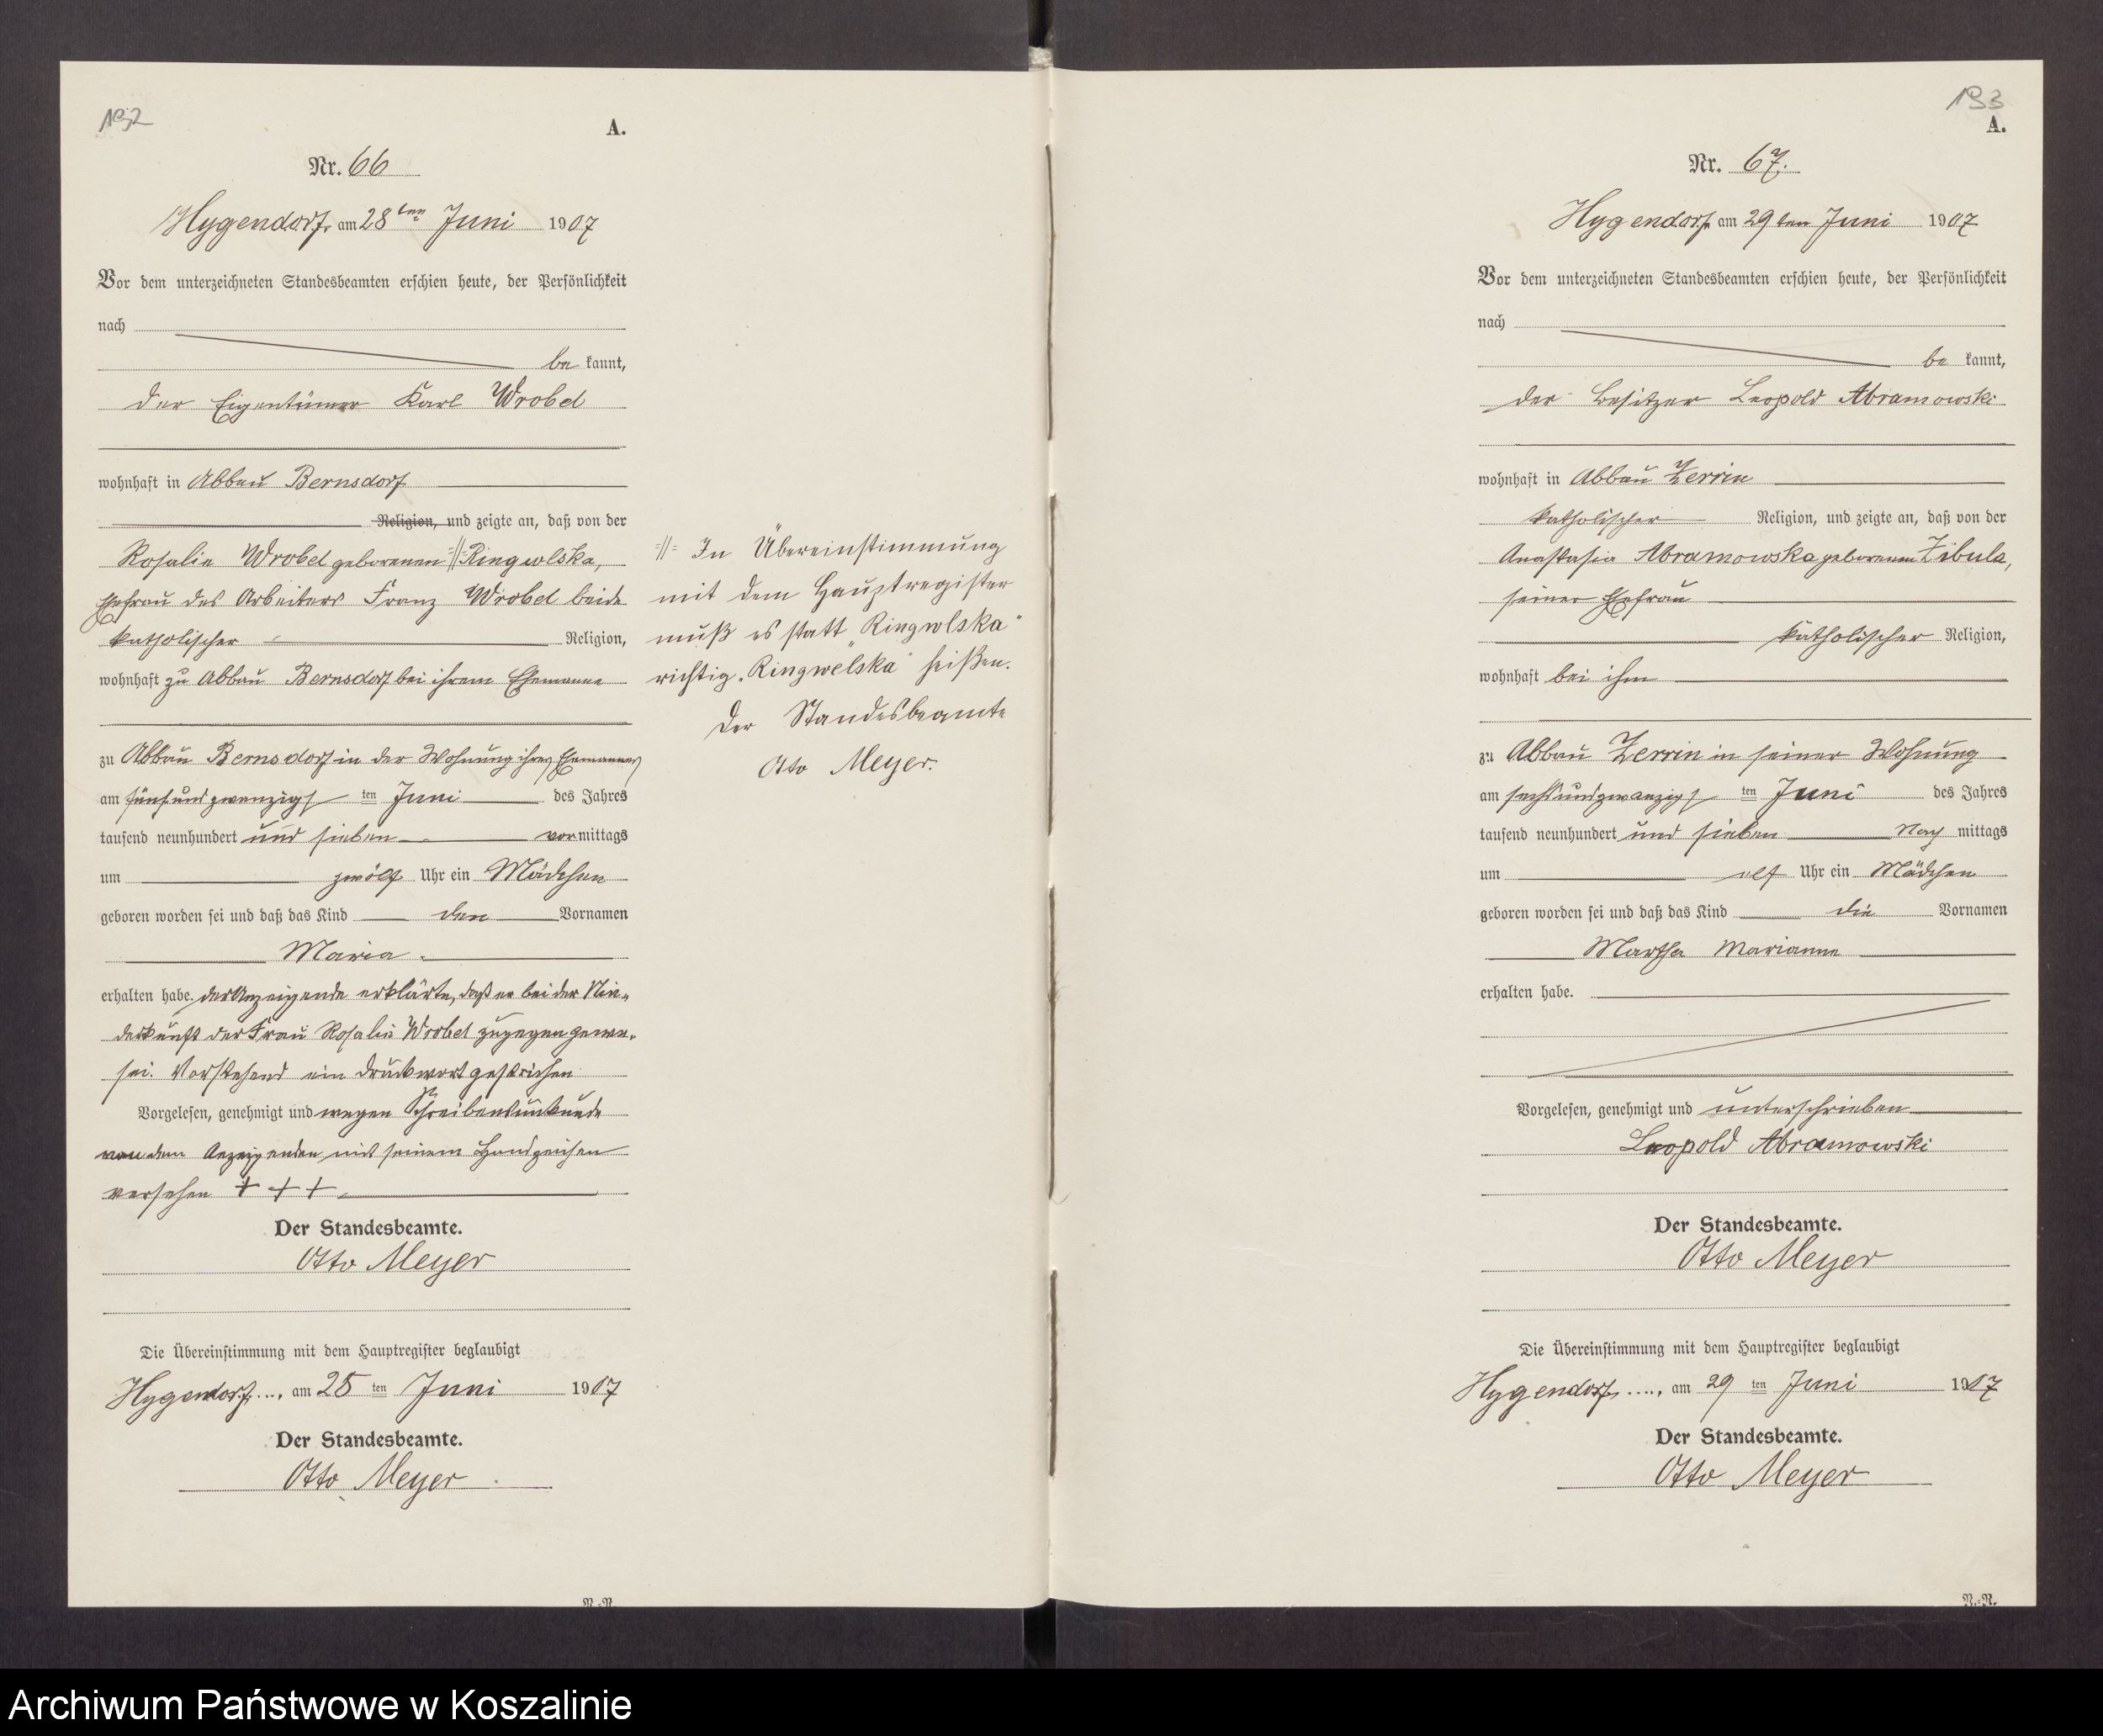 192
A.
Nr. 66
Hygendorf, am 28ten Juni 1907
Vor dem unterzeichneten Standesbeamten erschien heute, der Persönlichkeit
nach
be kannt,
der Eigentümer Karl Wrobel
wohnhaft in Abbau Bernsdorf
Religion, und zeigte an, daß von der
Rosalie Wrobel geborenen =//= Ringwlska,
Ehefrau des Arbeiters Franz Wrobel beide
katholischer Religion,
wohnhaft zu Abbau Bernsdorf bei ihrem Ehemanne
zu Abbau Bernsdorf in der Wohnung ihres Ehemannes
am fünfundzwanzigs ten Juni des Jahres
tausend neunhundert und sieben vor mittags
um zwölf Uhr ein Mädchen
geboren worden sei und daß das Kind den Vornamen
Maria
erhalten habe. der Anzeigende erklärte, daß er bei der Nie-
derkunft der Frau Rosalie Wrobel zugegen gewe-
sei. Vorstehend ein Druckwort gestrichen
Vorgelesen, genehmigt und wegen Schreibensunkunde
von dem Anzeigenden mit seinem Handzeichen
versehen + + +
Der Standesbeamte.
Otto Meyer
Die Übereinstimmung mit dem Hauptregister beglaubigt
Hygendorf, am 28 ten Juni 1907
Der Standesbeamte.
Otto Meyer
N.-R.
=//= In Übereinstimmung
mit dem Hauptregister
muß es statt „Ringwlska"
richtig „Ringwelska" heißen.
Der Standesbeamte
Otto Meyer.
193
A.
Nr. 67.
Hygendorf, am 29ten Juni 1907
Vor dem unterzeichneten Standesbeamten erschien heute, der Persönlichkeit
nach
be kannt,
der Besitzer Leopold Abramowski
wohnhaft in Abbau Zerrin
katholischer Religion, und zeigte an, daß von der
Anastasia Abramowska geborenen Zibula,
seiner Ehefrau
katholischer Religion,
wohnhaft bei ihm
zu Abbau Zerrin in seiner Wohnung
am sechsundzwanzigs ten Juni des Jahres
tausend neunhundert und sieben Nach mittags
um elf Uhr ein Mädchen
geboren worden sei und daß das Kind die Vornamen
Martha Marianne
erhalten habe.
Vorgelesen, genehmigt und unterschrieben
Leopold Abramowski
Der Standesbeamte.
Otto Meyer
Die Übereinstimmung mit dem Hauptregister beglaubigt
Hygendorf, am 29 ten Juni 1907
Der Standesbeamte.
Otto Meyer
N.-R.
Archiwum Państwowe w Koszalinie